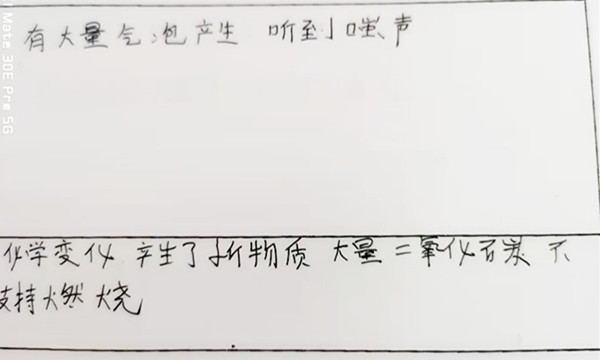 有大量气泡产生 听到嗤声
化学变化 产生了新物质 大量二氧化石炭 不
支持燃烧
Mate 30E Pro 5G